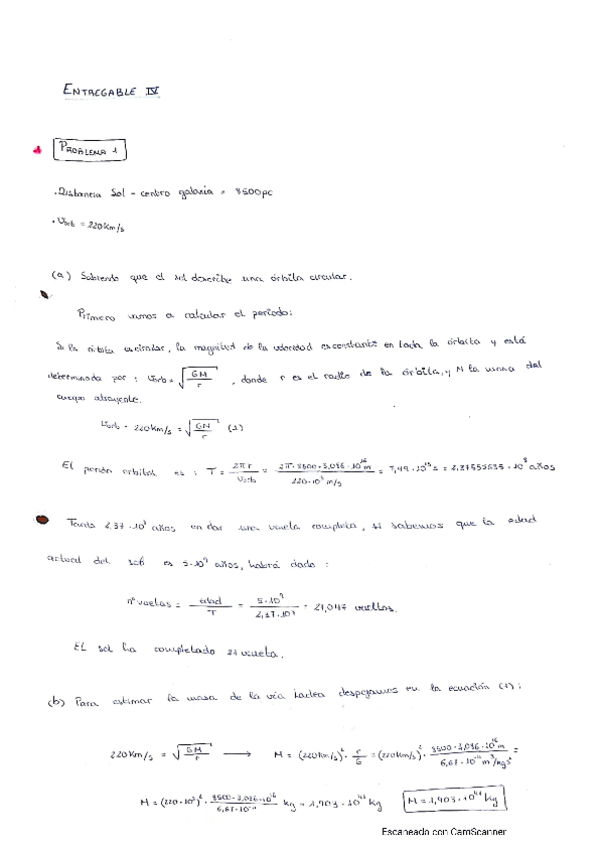 ENTREGABLE IV
PROBLEMA 1
• Distancia Sol - centro galaxia = 8500pc
• Vorb = 220 Km/s
(a) Sabiendo que el sol describe una órbita circular.
Primero vamos a calcular el período:
Si la órbita es circular, la magnitud de la velocidad es constante en toda la órbita y está
determinada por: Vorb = √(GM/r), donde r es el radio de la órbita, y M la masa del
cuerpo atrayente.
Vorb = 220 Km/s = √(GM/r) (1)
El período orbital es: T = 2πr/Vorb = 2π·8500·3,086·10^16 m / 220·10^3 m/s = 7,49·10^15 s = 2,37555635·10^8 años
Tarda 2,37·10^8 años en dar una vuelta completa, si sabemos que la edad
actual del sol es 5·10^9 años, habrá dado:
nº vueltas = edad/T = 5·10^9 / 2,37·10^8 = 21,047 vueltas.
El sol ha completado 21 vuelta.
(b) Para estimar la masa de la vía láctea despejamos en la ecuación (1):
220 Km/s = √(GM/r) → M = (220 Km/s)^2 · r/G = (220 Km/s)^2 · 8500·3,086·10^16 m / 6,67·10^-11 m^3/kg s^2 =
M = (220·10^3)^2 · 8500·3,086·10^16 / 6,67·10^-11 kg = 1,903·10^41 kg M = 1,903·10^41 kg
Escaneado con CamScanner